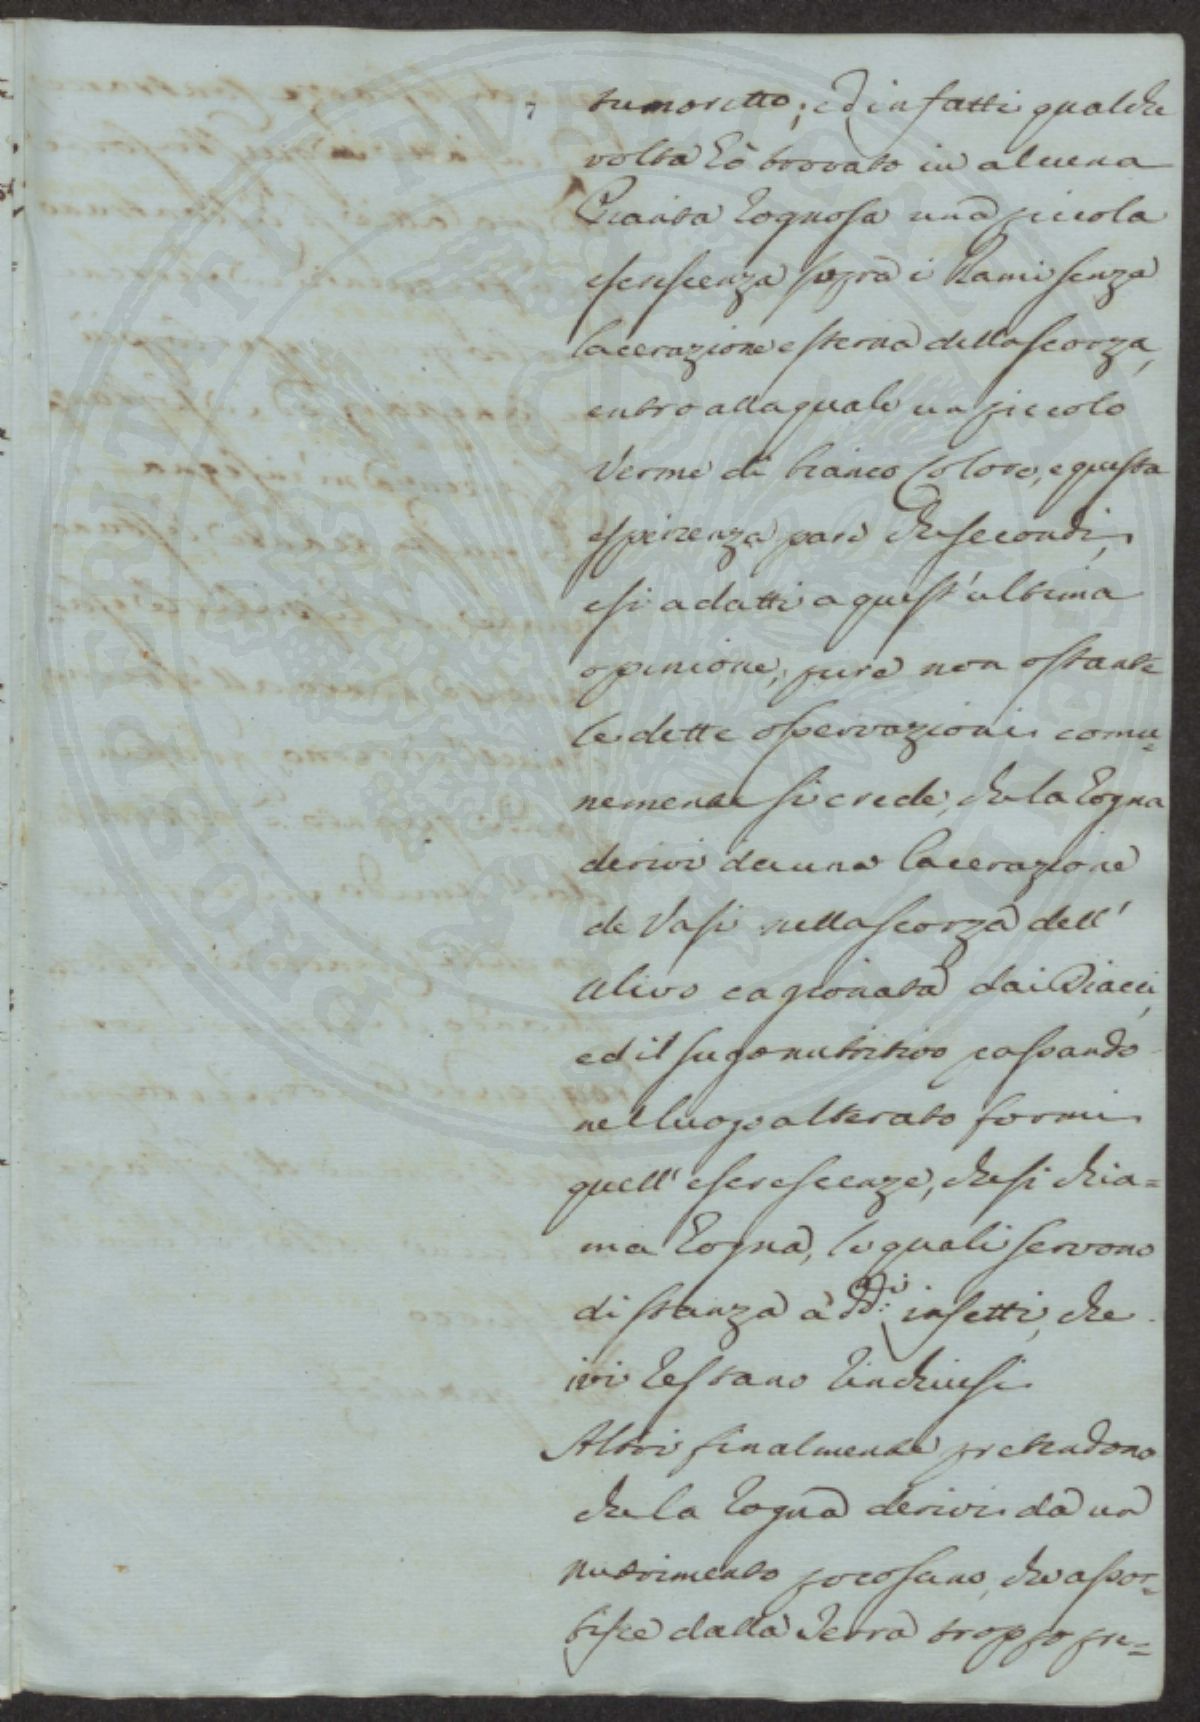 7 tumoretto; ed in fatti qualche
volta hò trovato in alcuna
Pianta Rognosa una piccola
escrescenza sopra i Rami senza
lacerazione esterna della scorza,
entro alla quale un piccolo
Verme di bianco Colore, e questa
esperienza pare che secondi,
e si adatti a quest' ultima
opinione, pure non ostante
le dette osservazioni comu=
nemente si crede, che la Rogna
derivi da una lacerazione
de Vasi nella scorza dell'
Ulivo cagionata dai Diacci,
ed il sugo nutritivo passando
nel luogo alterato formi
quell' escrescenze, che si chia=
ma Rogna, le quali servono
di stanza à dd:i insetti, che
ivi restano rinchiusi
Altri finalmente pretendono
che la Rogna derivi da un
nutrimento poco sano, che assor=
bisce dalla Terra troppo pre=
PROSPERITATI PVBLICAE